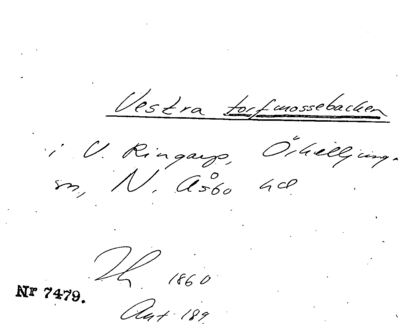 Vestra torfmossebacken
i V. Ringarp, Örkelljunga
sn, N. Åsbo hd
1860
Nr 7479.
Ant 189